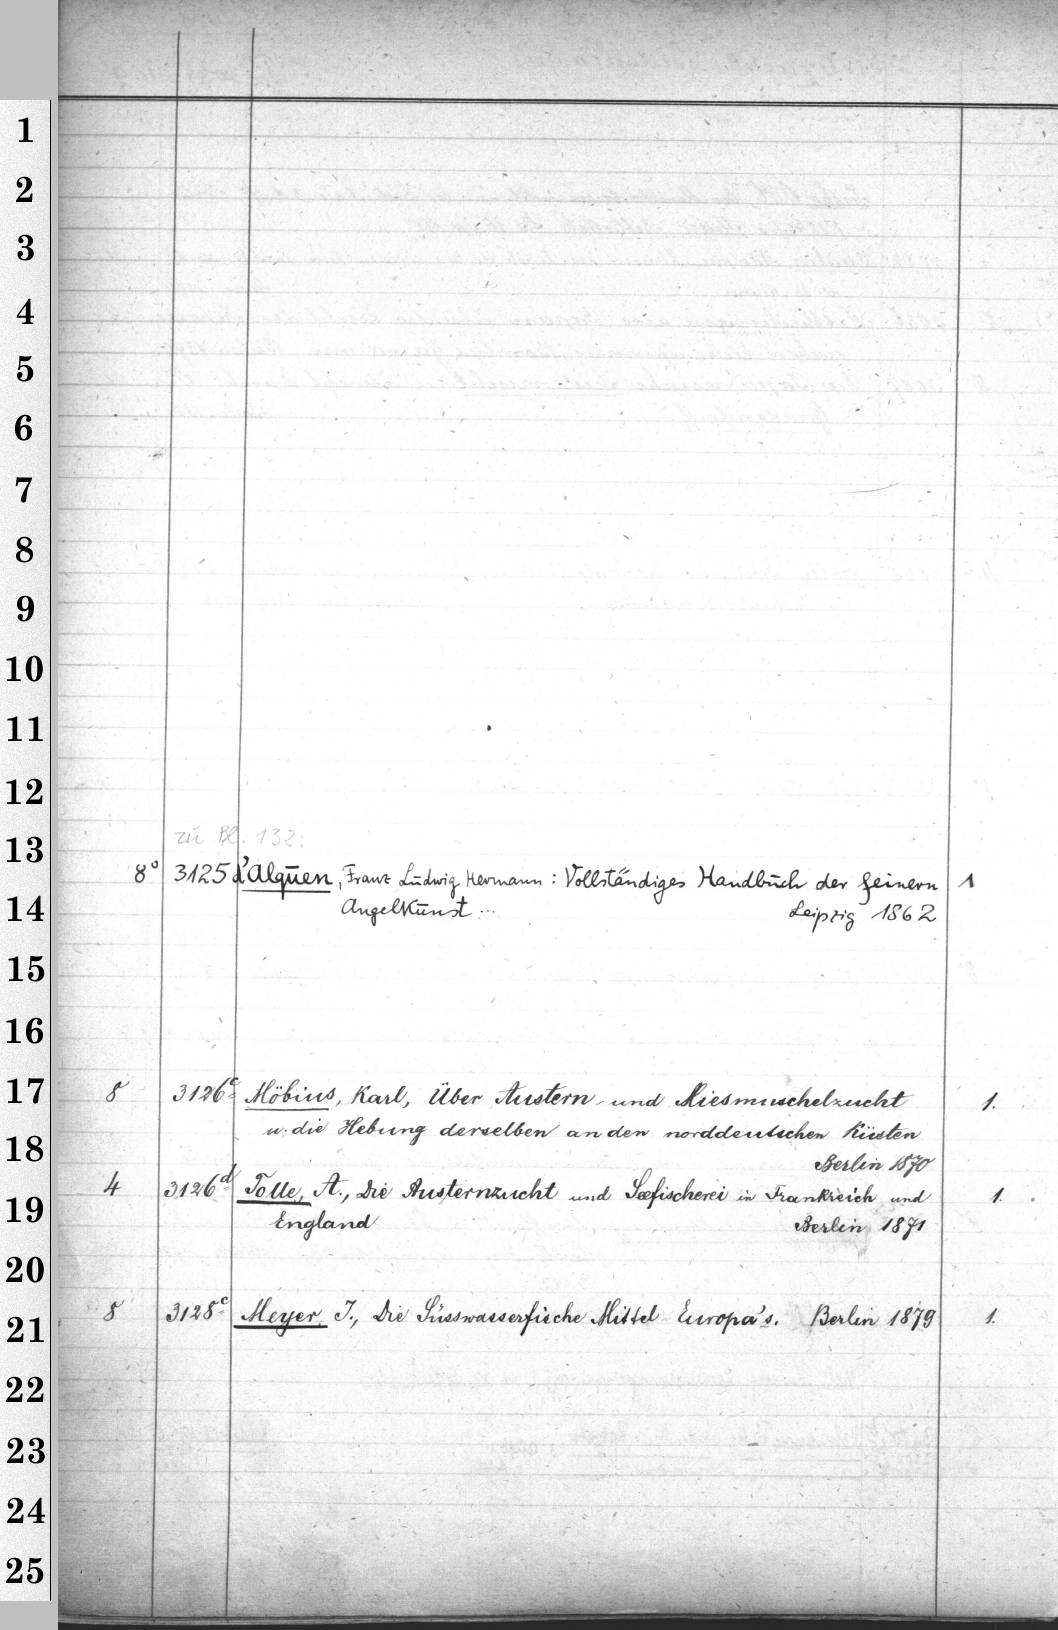 1
2
3
4
5
6
7
8
9
10
11
12
13
zu Bl. 132:
8° 3125 d'Alquen, Franz Ludwig Hermann: Vollständiges Handbuch der feinern 1
14
Angelkunst ... Leipzig 1862
15
16
17
8 3126c Möbius, Karl, Über Austern- und Miesmuschelzucht 1.
u. die Hebung derselben an den norddeutschen Küsten
18
Berlin 1870
4 3126d Tolle, A., Die Austernzucht und Seefischerei in Frankreich und 1.
19
England Berlin 1871
20
8 3128c Meyer, J., Die Süsswasserfische Mittel Europa's. Berlin 1879 1.
21
22
23
24
25